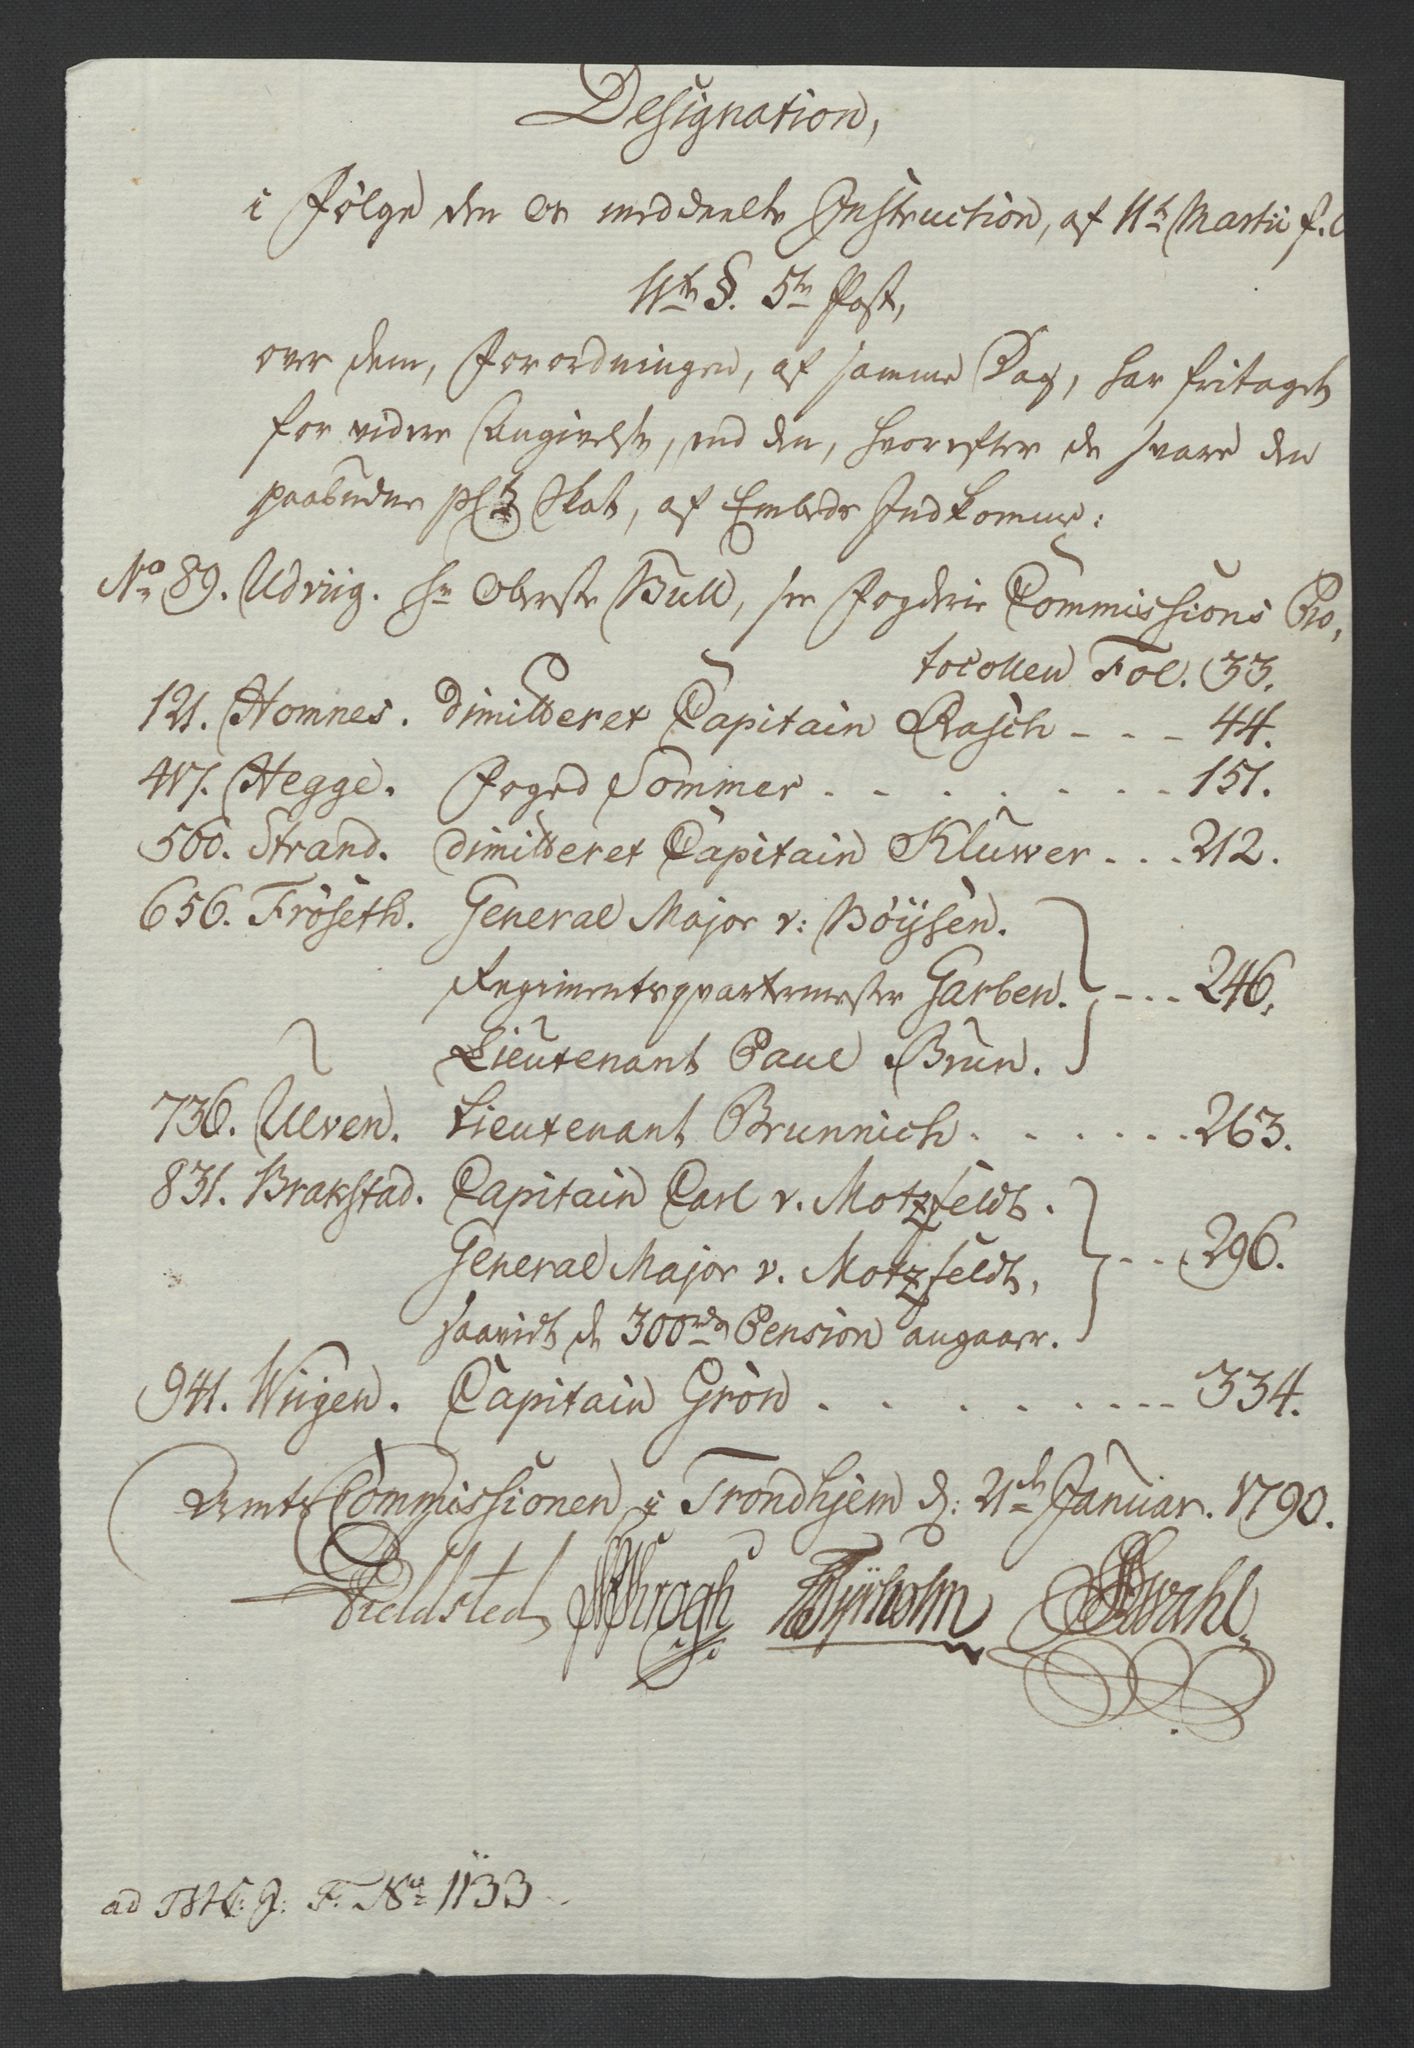 Designation,
i Følge den Os meddeelte Instruction, af 11te Martii f. A
11te §. 5te Post,
over dem, Forordningen, af samme Dag, har fritaget
for videre Angivelse, end den, hvorefter de svare den
paabudne Skat, af Embeds Indkomme:
No 89. Udviig. Hr Oberste Bull, see Fogderie Commissions Pro,
tocollen Fol. 33.
121. Homnes. dimitteret Capitain Rasch - - - 44.
417. Hegge. Foged Sommer . - . . . - - - 151.
560. Strand. dimitteret Capitain Klüwer . . . 212.
656. Fröseth. General Major v: Böÿsen.
Regimentsqvartermester Garben. - - - 246.
Lieutenant Paul Brun.
736. Ulven. Lieutenant Brunnich . . . . . . . 263.
831. Brakstad. Capitain Carl v. Motzfeldt.
General Major v. Motzfeldt, - - - 296.
saavidt de 300rd Pension angaaer.
941. Wiigen. Capitain Grön . . . . . . - - - 334.
Amts Commissionen i Trondhjem d: 21de Januar. 1790.
Fieldsted Krogh Tyrholm Swahl
ad No 1133